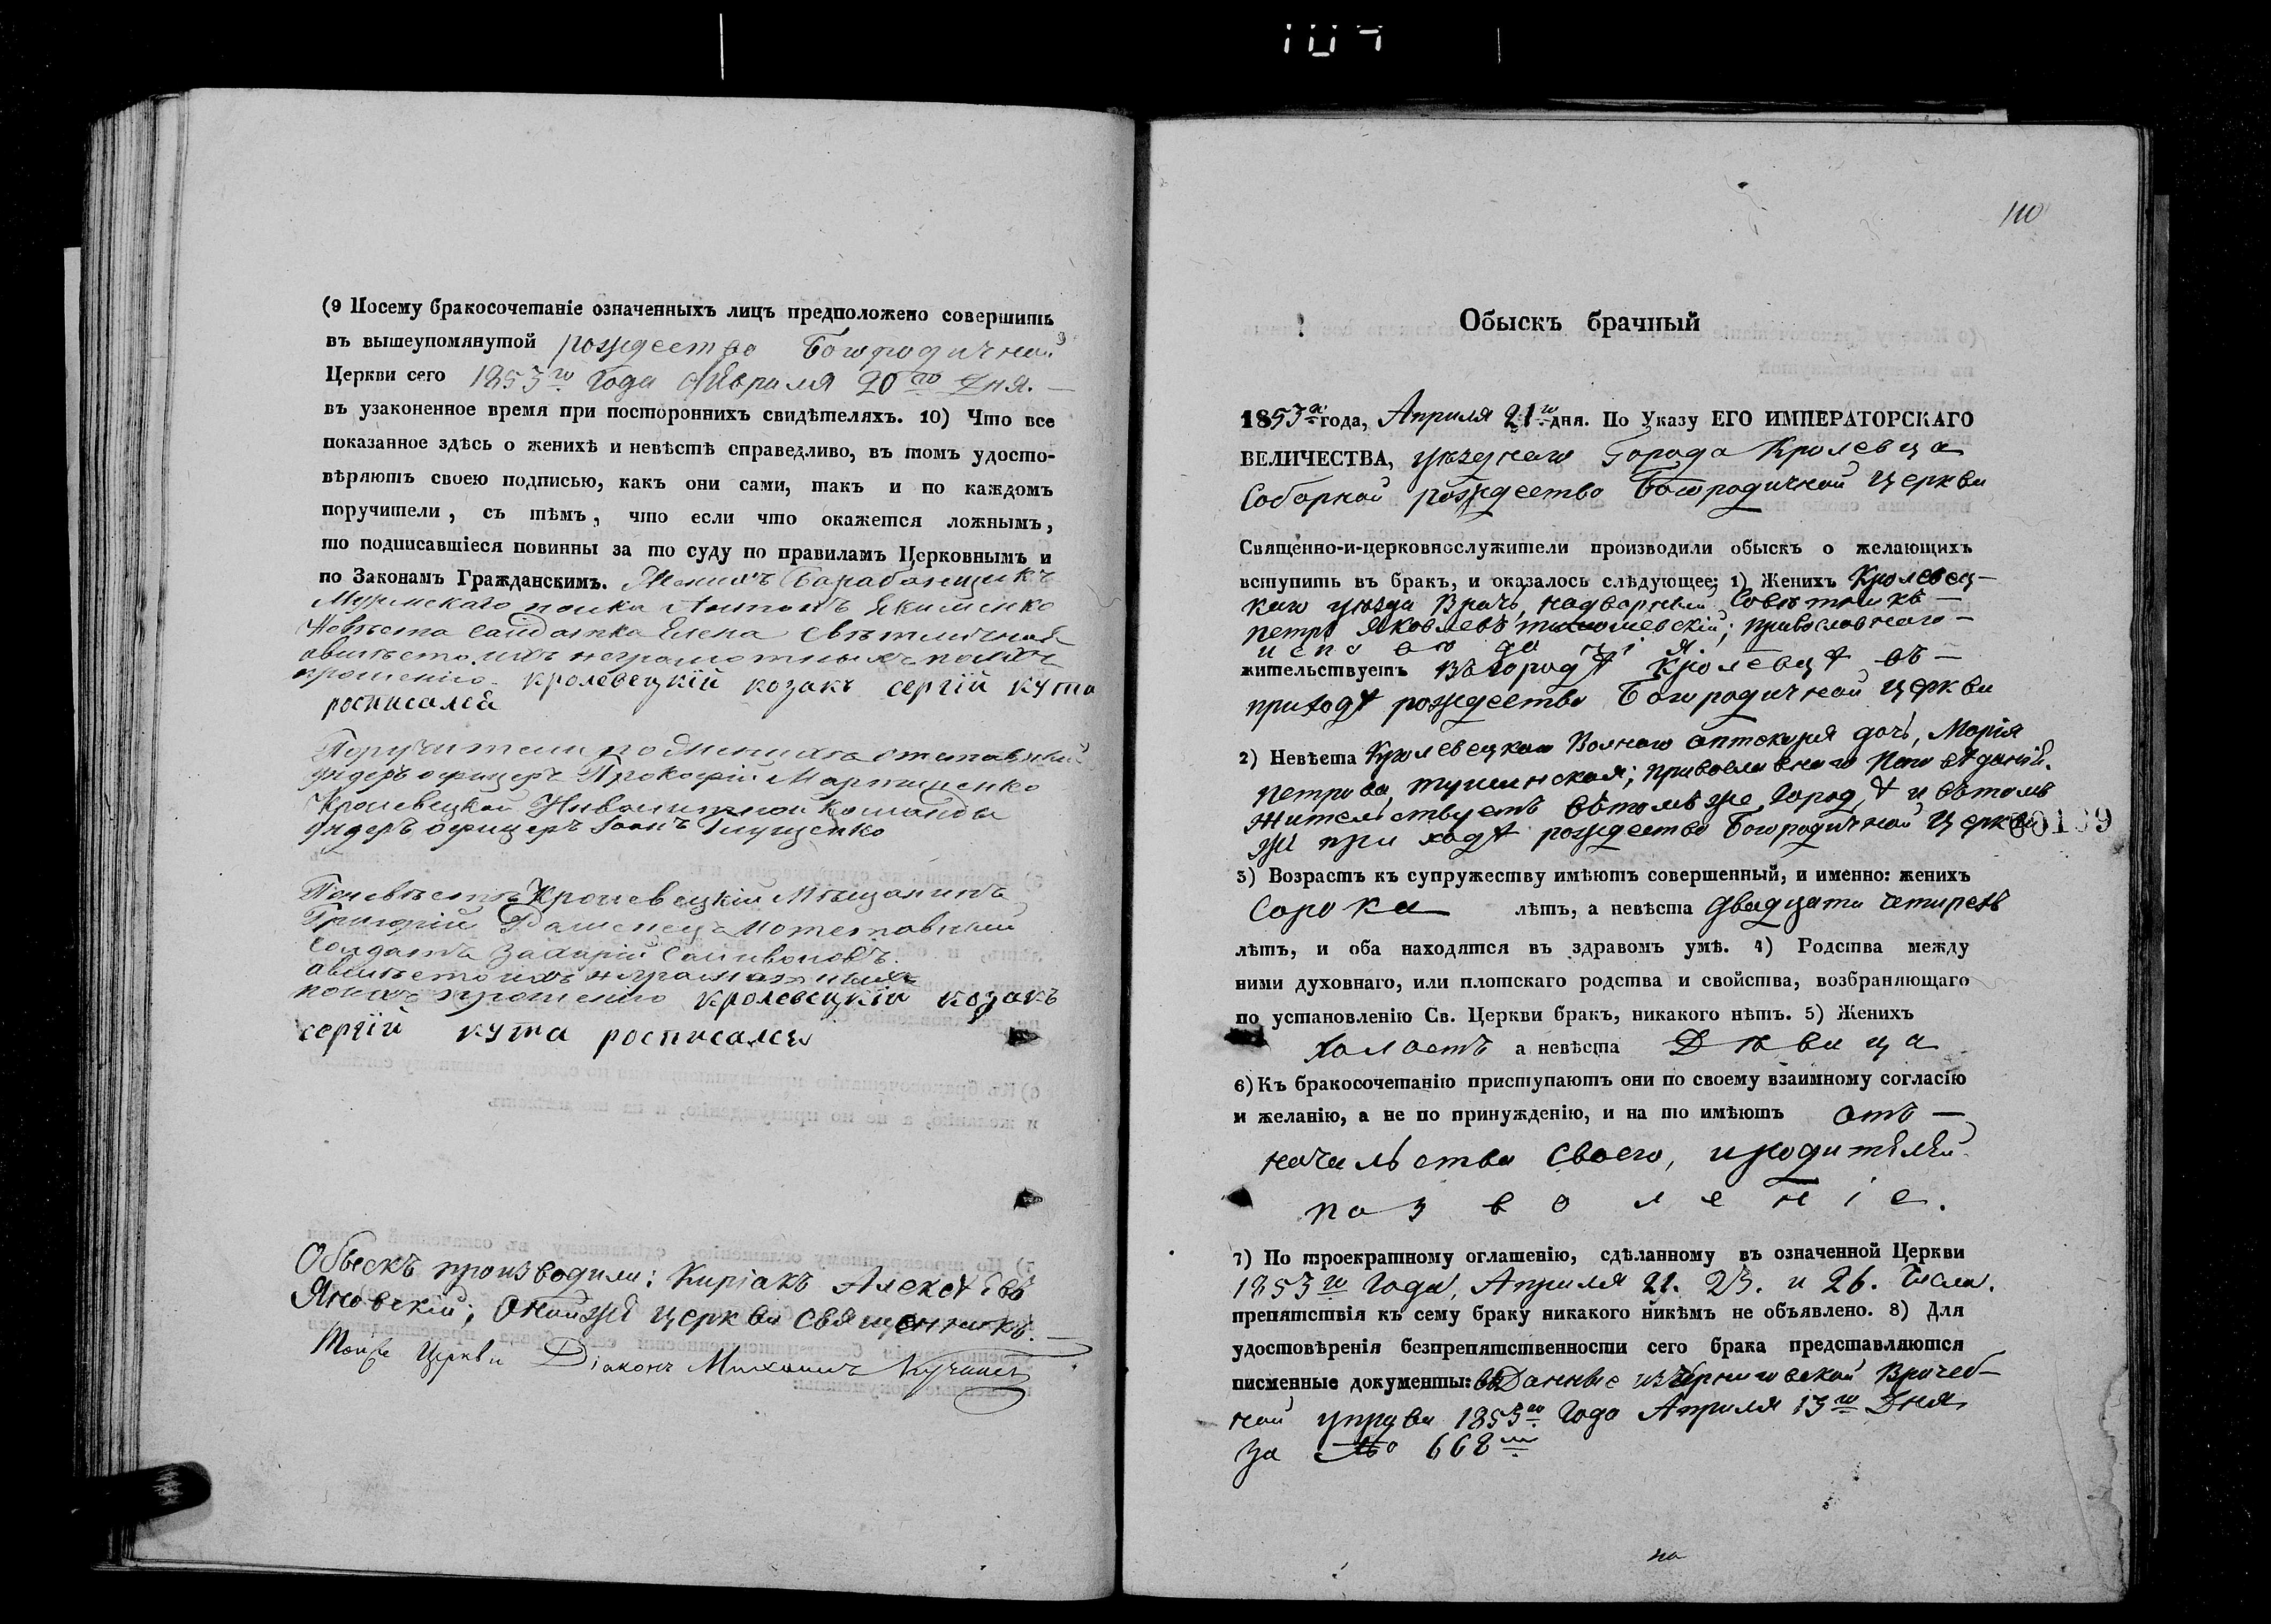 (9 Посему бракосочетаніе означенныхъ лицъ предположено совершить
въ вышеупомянутой рождество Богородичной
Церкви сего 1853го года Апреля 20го Дня. —
въ узаконенное время при постороннихъ свидѣтеляхъ. 10) Что все
показанное здѣсь о женихѣ и невѣстѣ справедливо, въ томъ удосто-
вѣряютъ своею подписью, какъ они сами, такъ и по каждомъ
поручители, съ тѣмъ, что если что окажется ложнымъ,
то подписавшіеся повинны за то суду по правиламъ Церковнымъ и
по Законамъ Гражданскимъ. Женихъ Барабанщикъ
полка Антонъ Якименко
Невѣста Солдатка Елена
вмѣсто ихъ неграмотныхъ по ихъ
прошенію кролевецкій козакъ сергій кута
росписалса
Поручители по Женихѣ отставный
ундеръ офицеръ Прокофій Мартиненко
Кролевецкой Инвалидной Команды
Ундеръ офицеръ Іоанъ Глущенко
По невѣстѣ Кролевецкій Мѣщанинъ
Григорій отставный
солдатъ Захарій
вмѣсто ихъ неграмотныхъ
по ихъ прошенію кролевецкій козакъ
сергій кута росписалса
Обыскъ производили: Киріакъ Алексѣевъ
Яновскій; оной же церкви священникъ. —
Той же Церкви Діаконъ Михаилъ
110
Обыскъ брачный
1853го года, Апреля 21го дня. По Указу ЕГО ИМПЕРАТОРСКАГО
ВЕЛИЧЕСТВА, уѣзднаго Города Кролевца
Соборной рождество Богородичной церкви
Священно-и-церковнослужители производили обыскъ о желающихъ
вступить въ бракъ, и оказалось слѣдующее; 1) Женихъ Кролевец-
каго уѣзда Врачъ, надворный Совѣтникъ —
петръ Яковлевъ православнаго —
исповѣданія.
жительствуетъ въ городѣ Кролевцѣ въ —
приходѣ рождество Богородичной церкви
2) Невѣста Кролевецкаго Волнаго аптекаря дочь, Марія
петрова, тушинская; православнаго исповѣданій.
жительствуетъ вътомъ же городѣ и вътомъ
же приходѣ рождество Богородичной церкви
3) Возрастъ къ супружеству имѣютъ совершенный, и именно: женихъ
Сорока лѣтъ, а невѣста двадцати четирехъ
лѣтъ, и оба находятся въ здравомъ умѣ. 4) Родства между
ними духовнаго, или плотскаго родства и свойства, возбраняющаго
по установленію Св. Церкви бракъ, никакого нѣтъ. 5) Женихъ
холостъ а невѣста Дѣвица
6) Къ бракосочетанію приступаютъ они по своему взаимному согласію
и желанію, а не по принужденію, и на то имѣютъ отъ —
начальства своего, и родителей
позволеніе.
7) По троекратному оглашенію, сдѣланному въ означенной Церкви
1853го года, Апреля 21. 23. и 26. Числа.
препятствія къ сему браку никакого никѣмъ не объявлено. 8) Для
удостовѣренія безпрепятственности сего брака представляются
писменные документы: Данные изъ Черниговской Врачеб-
ной управы 1853го года Апреля 13го Дня
за № 668